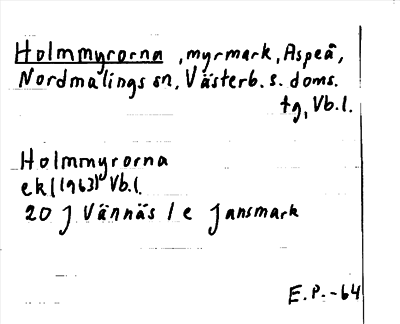 Holmmyrorna, myrmark, Aspeå,
Nordmalings sn, Västerb. s. doms.
tg, Vb.l.
Holmmyrorna
ek (1963) Vb.l.
20 J Vännäs 1 e Jansmark
E.P.-64